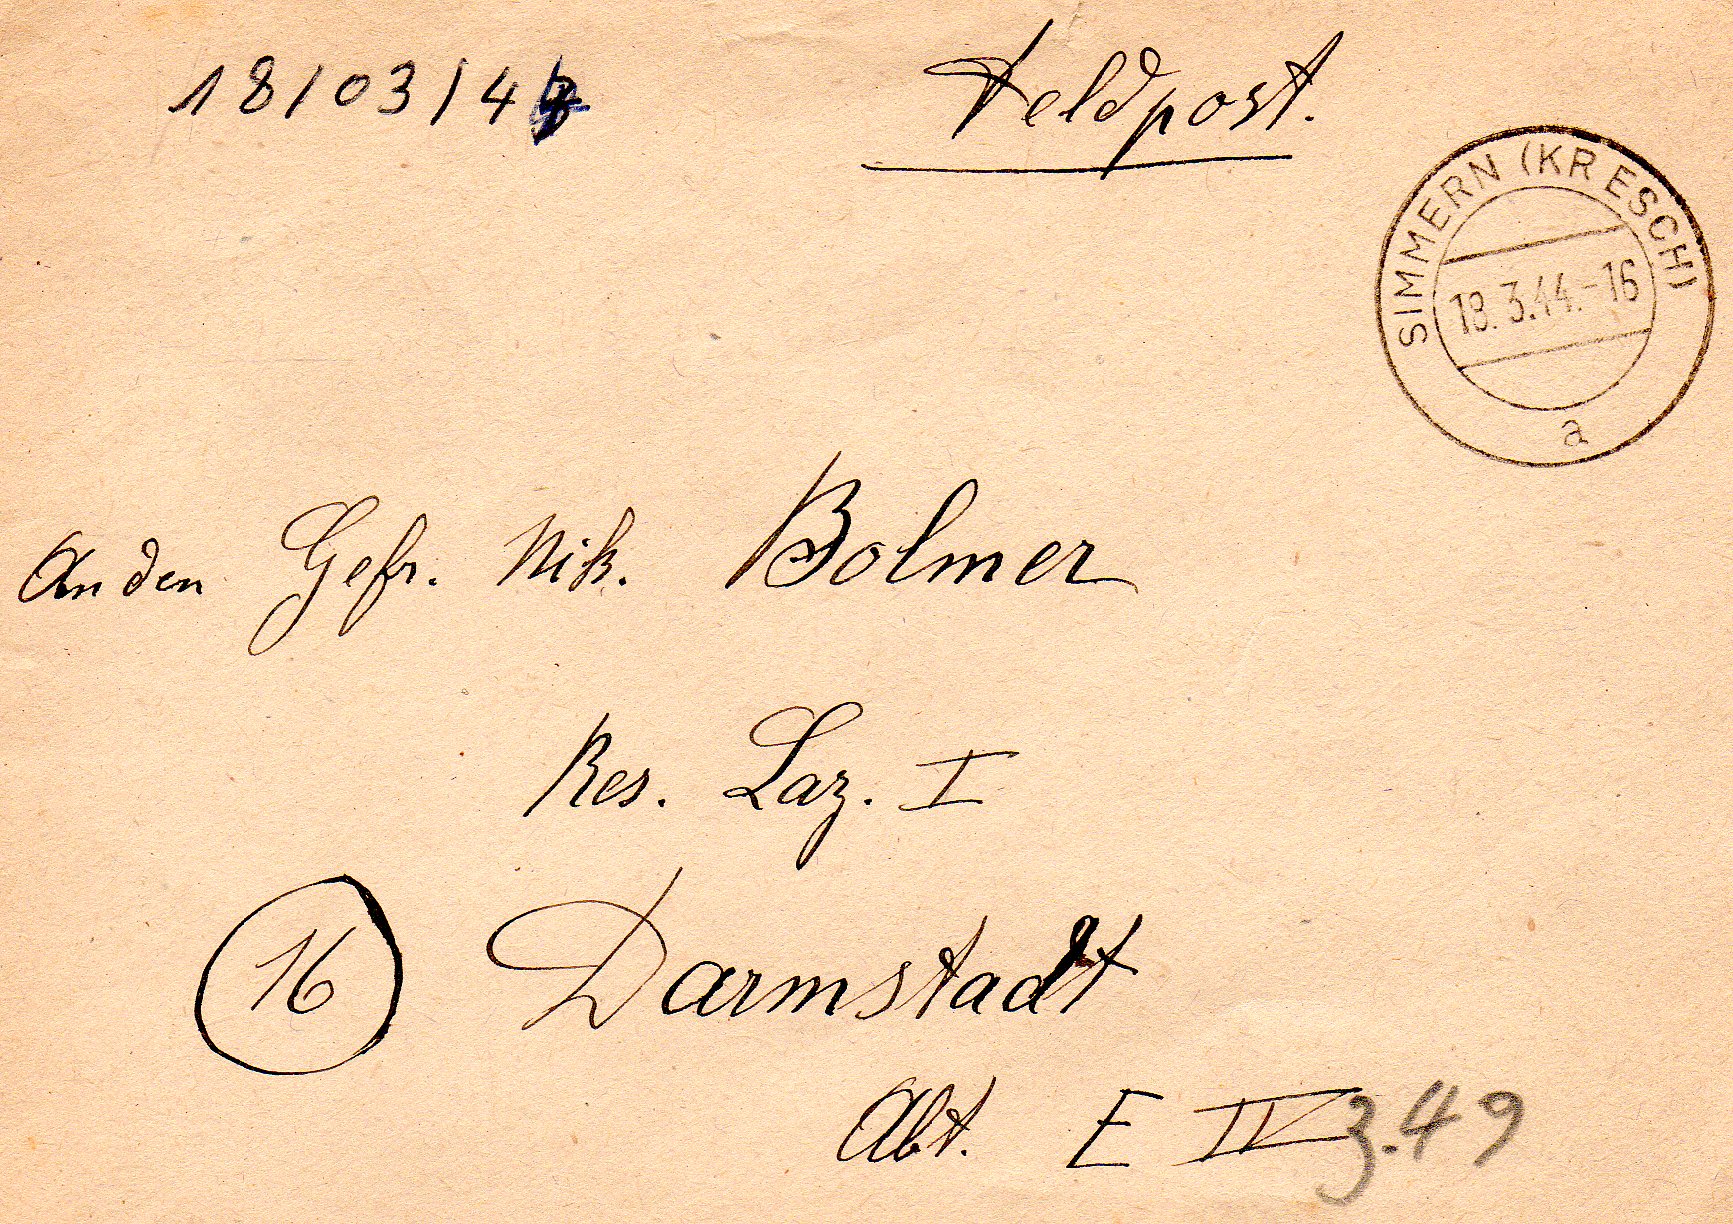 18/03/44
Feldpost.
SIMMERN (KR ESCH)
18.3.44.-16
a
An den Gefr. Nik. Bolmer
Res. Laz. I
16 Darmstadt
Abt. E IV z.49